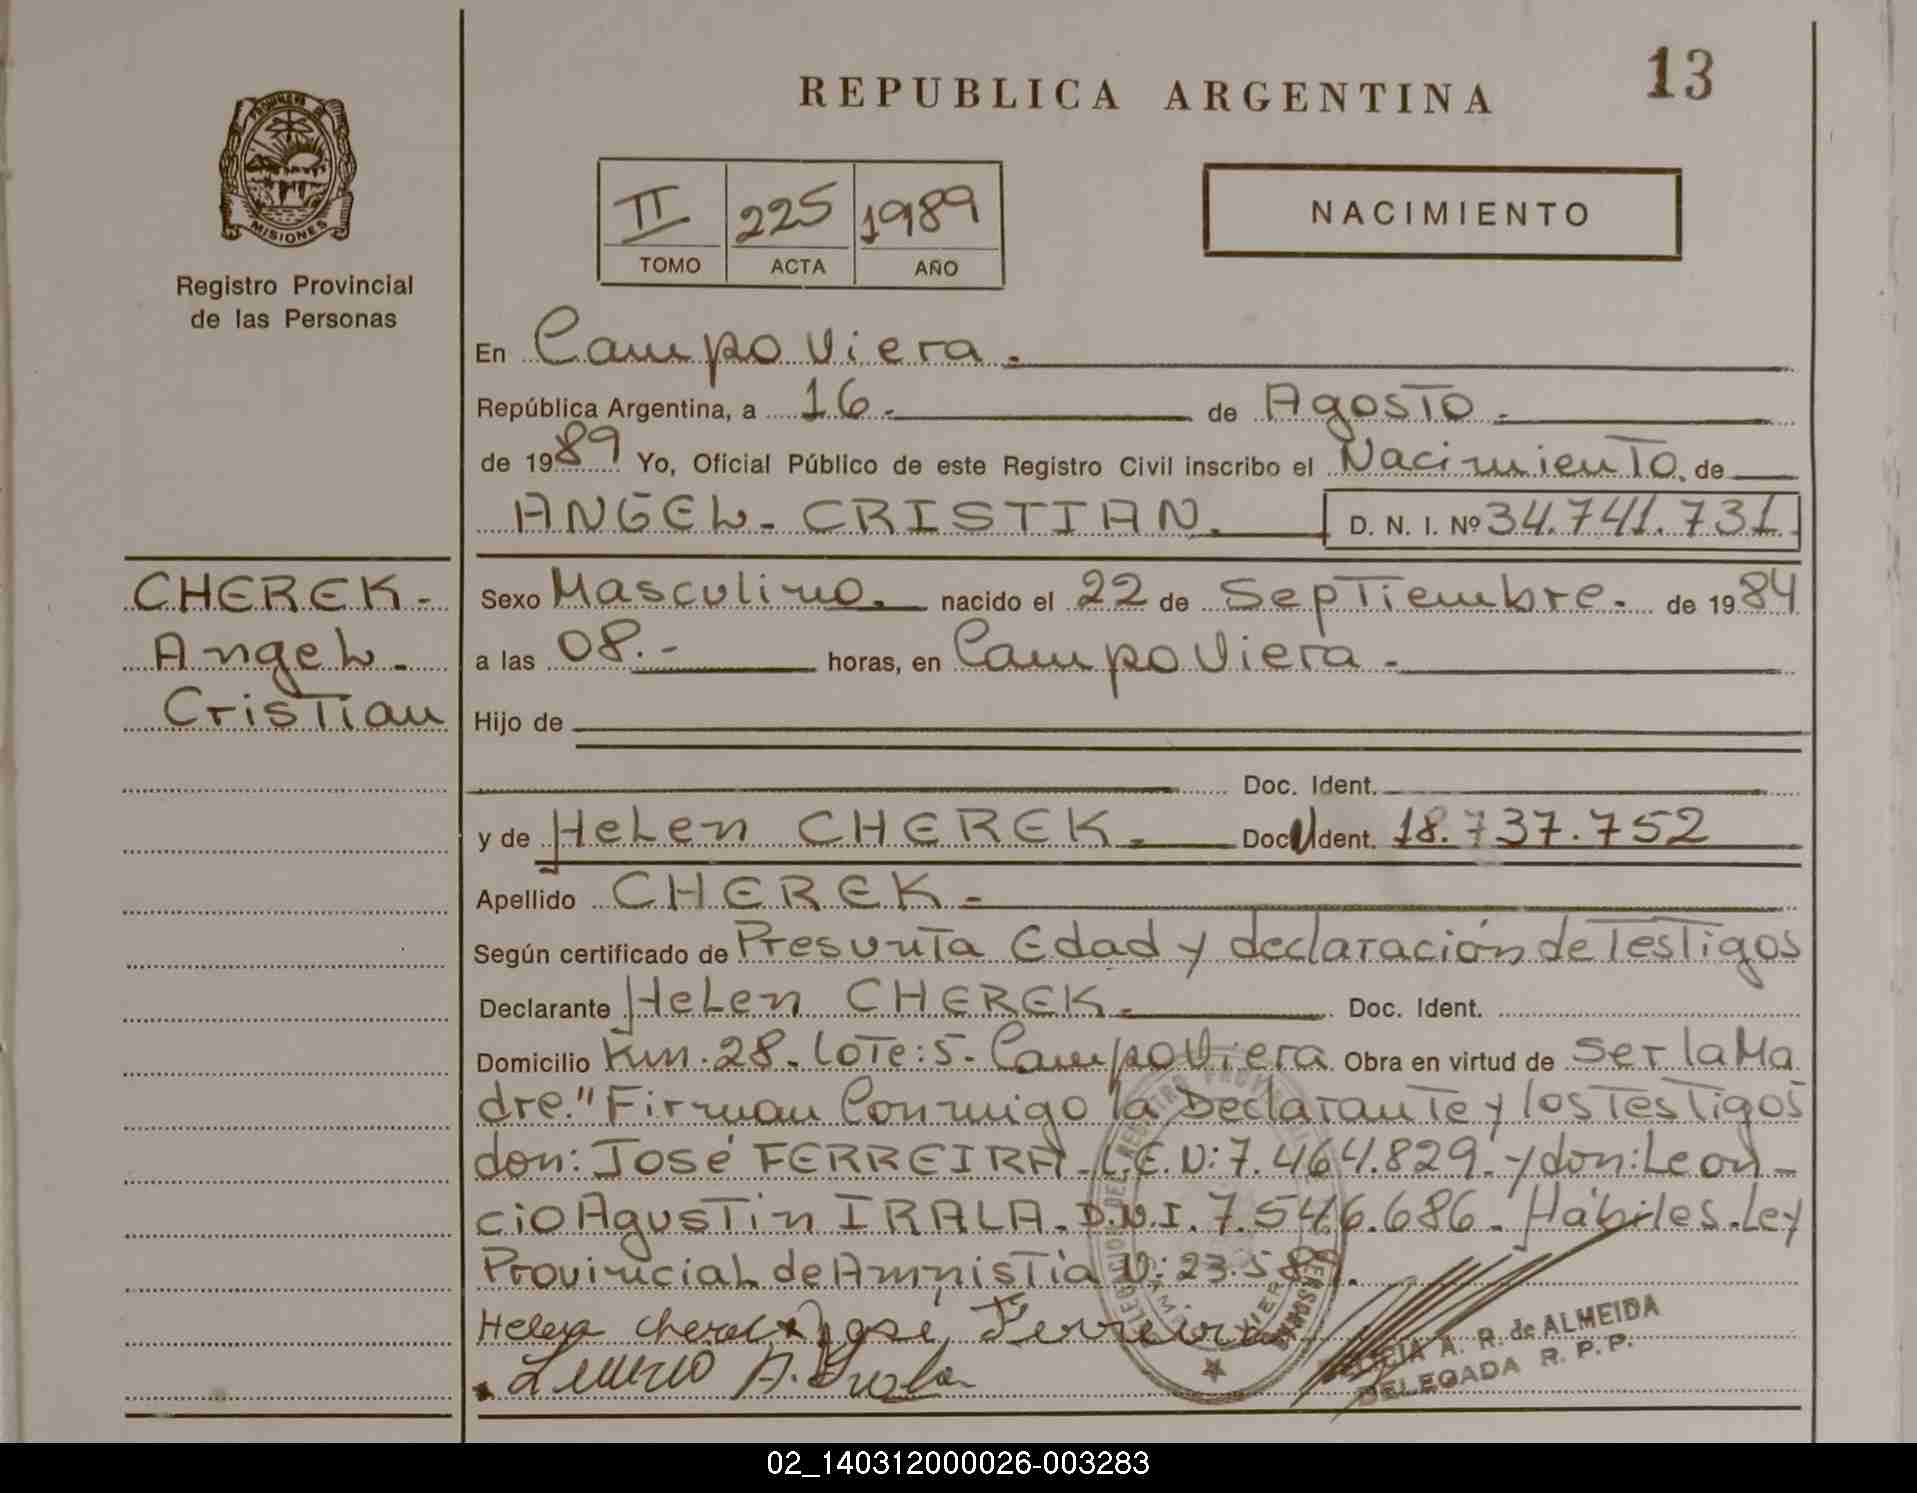 REPUBLICA ARGENTINA
13
PROVINCIA DE
MISIONES
Registro Provincial
de las Personas
II 225 1989
TOMO ACTA AÑO
NACIMIENTO
En Campo Viera.
República Argentina, a 16. de Agosto.
de 1989 Yo, Oficial Público de este Registro Civil inscribo el Nacimiento, de
ANGEL CRISTIAN. D. N. I. Nº 34.741.731.
CHEREK-
Angel.
Cristian
Sexo Masculino. nacido el 22 de Septiembre. de 1984
a las 08.- horas, en Campo Viera.
Hijo de
Doc. Ident.
y de Helen CHEREK. Doc Ident. 18.737.752
Apellido CHEREK.
Según certificado de Presunta Edad y declaración de Testigos
Declarante Helen CHEREK. Doc. Ident.
Domicilio Km. 28. Lote: 5. Campo Viera. Obra en virtud de ser la Ma
dre." Firman Conmigo la Declarante y los Testigos
don: José FERREIRA. L.E.N: 7.464.829. y don: Leon-
cio Agustin IRALA. D.N.I. 7.546.686. Hábiles. Ley
Provincial de Amnistia N: 23.58
Helen Cherek José Ferreira
A. Irala
A. R. de ALMEIDA
DELEGADA R. P. P.
02_140312000026-003283